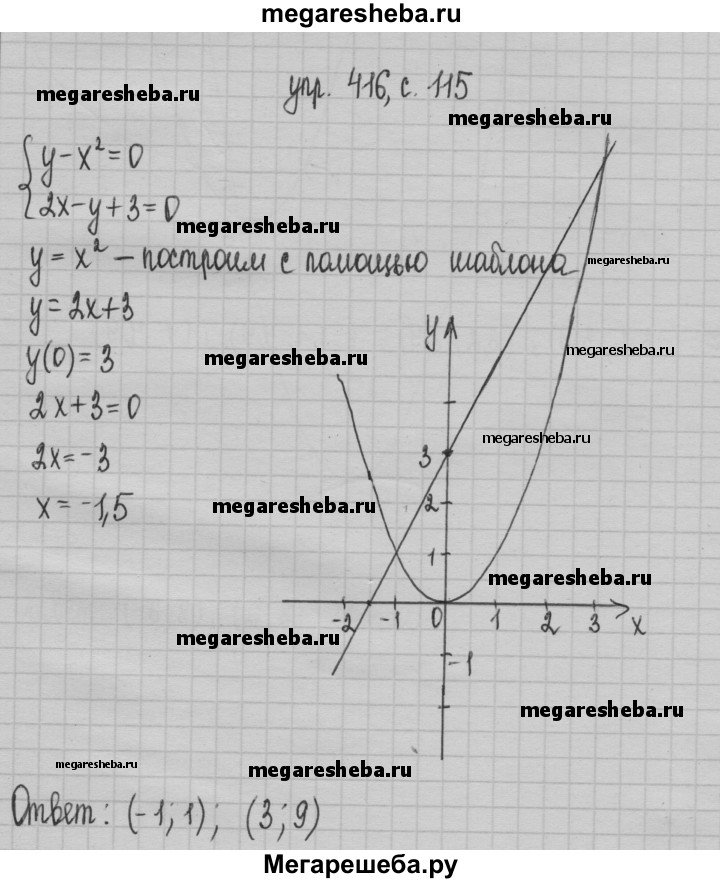 megaresheba.ru
упр. 416, с. 115
megaresheba.ru
megaresheba.ru
y-x²=0
2x-y+3=0
megaresheba.ru
y=x² - построим с помощью шаблона
megaresheba.ru
y=2x+3
y(0)=3
megaresheba.ru
megaresheba.ru
2x+3=0
megaresheba.ru
2x=-3
x=-1,5
megaresheba.ru
y
3
2
1
megaresheba.ru
-2 -1 0 1 2 3 x
megaresheba.ru
-1
megaresheba.ru
megaresheba.ru
megaresheba.ru
Ответ: (-1; 1); (3; 9)
Мегарешеба.ру